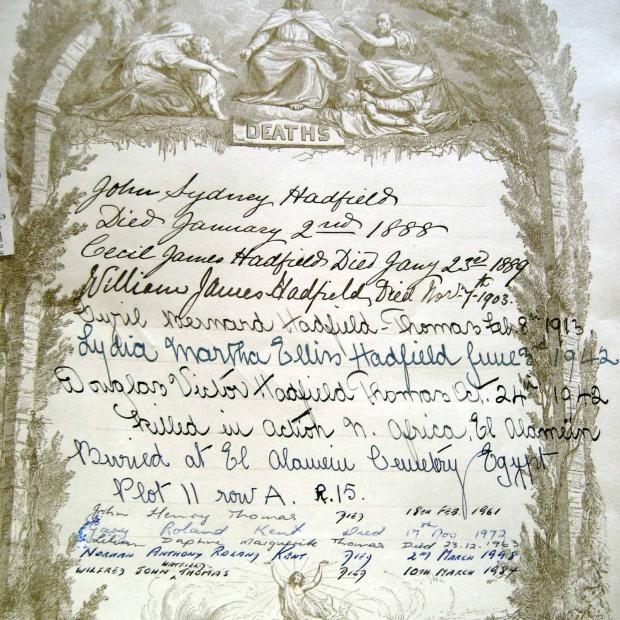 DEATHS
John Sydney Hadfield
Died January 2nd 1888
Cecil James Hadfield Died Jany 23rd 1889
William James Hadfield, Died Nov. 7th 1903.
Cyril Bernard Hadfield-Thomas Feb 8th 1913
Lydia Martha Ellis Hadfield June 3rd 1942
Douglas Victor Hadfield Thomas Oct. 24th 1942
Killed in action N. Africa, El Alamein
Buried at El Alamein Cemetry Egypt
Plot 11 row A. R.15.
John Henry Thomas Died 18th Feb. 1961
Roland Kent Died 17th Nov 1972
Lilian Daphne Marguerite Thomas Died 23.12.1963
Norman Anthony Roland Kent Died 2nd March 1998
Wilfred John Hatfield Thomas Died 10th March 1984